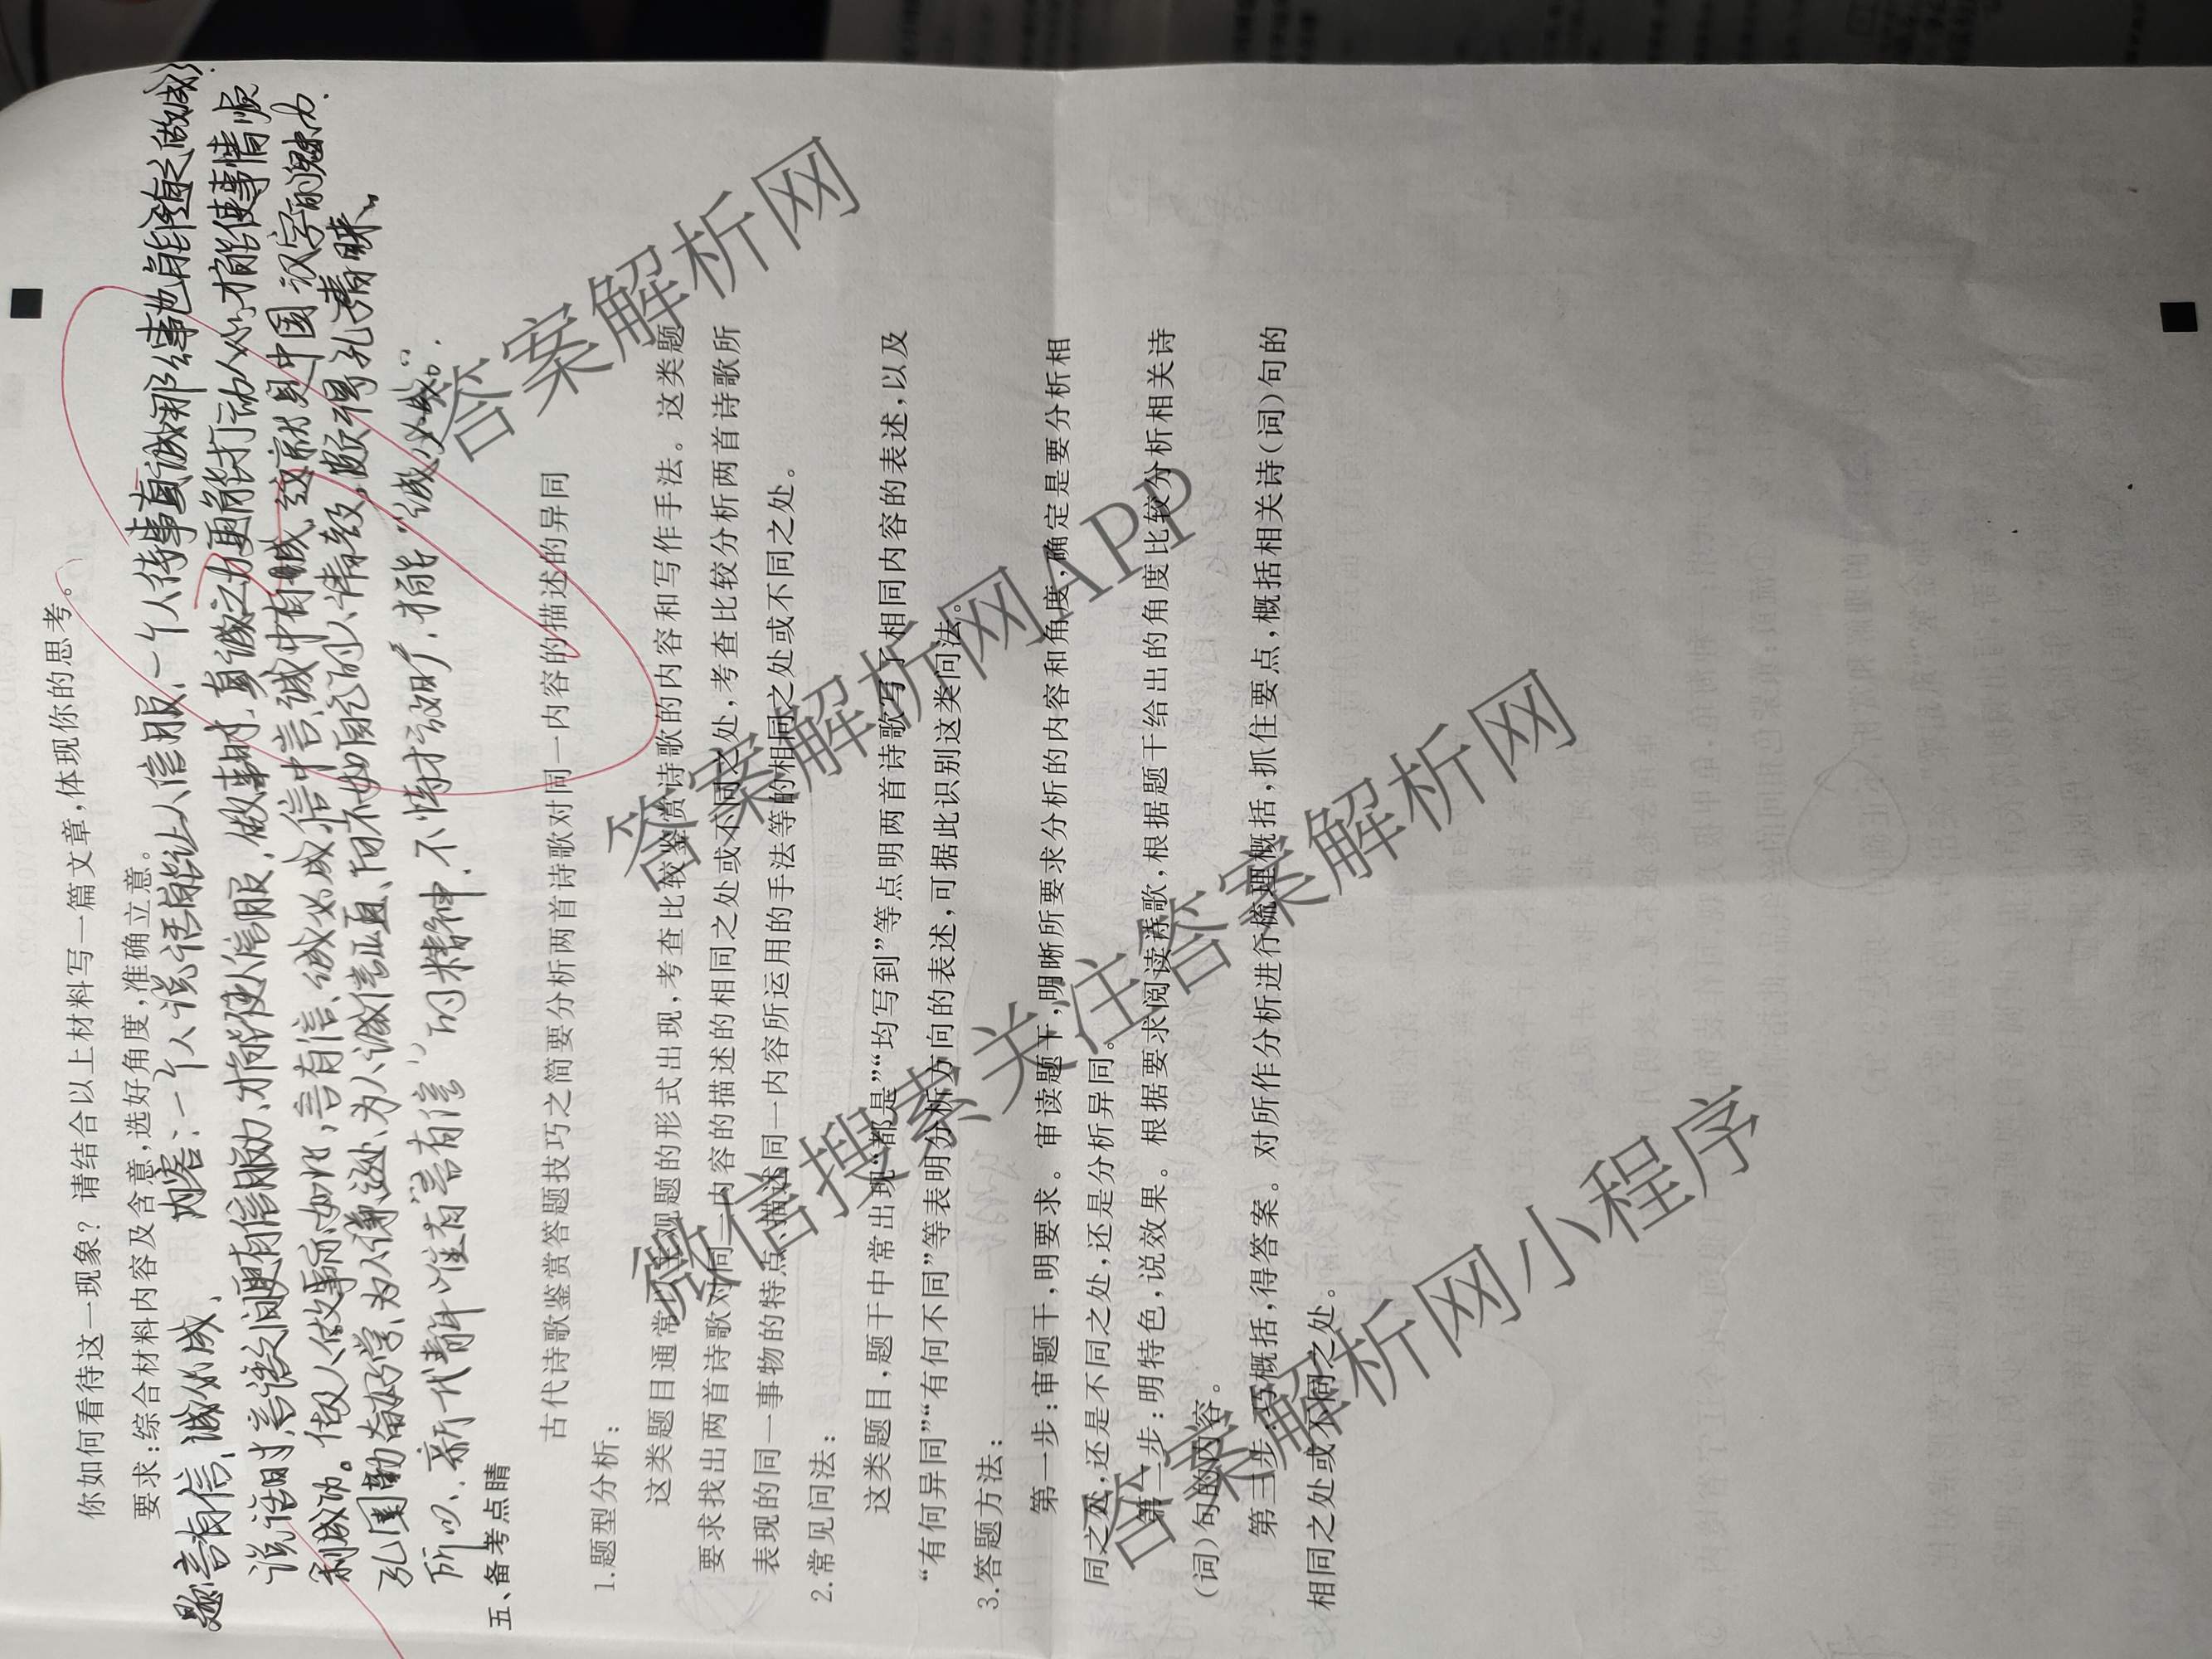 你如何看待这一现象?请结合以上材料写一篇文章,体现你的思考。
要求:综合材料内容及含意,选好角度,准确立意。
言有信,诚必成,
内容:一个人说话能让人信服,一个人待事真诚那件事也能随之做成
说话时,言语之间更有信服力,才能使人信服,做事时,真诚之力更能打动人心,才能使事情顺
利成功。做人做事亦如此,言有信,诚必成,信中言,诚中有,这就是中国汉字的魅力.
所以,新代青年唯有“言有信”的精神,不才能“诚必成”.
五、备考点睛
古代诗歌鉴赏答题技巧之简要分析两首诗歌对同一内容的描述的异同
1.题型分析:
这类题目通常以主观题的形式出现,考查比较鉴赏诗歌的内容和写作手法。这类题
要求找出两首诗歌对同一内容的描述的相同之处或不同之处,考查比较分析两首诗歌所
表现的同一事物的特点、描述同一内容所运用的手法等的相同之处或不同之处。
2.常见问法:
这类题目,题干中常出现“都是”“均写到”等点明两首诗歌写了相同内容的表述,以及
“有何异同”“有何不同”等表明分析方向的表述,可据此识别这类问法。
3.答题方法:
第一步:审题干,明要求。审读题干,明晰所要求分析的内容和角度,确定是要分析相
同之处,还是不同之处,还是分析异同。
第二步:明特色,说效果。根据要求阅读诗歌,根据题干给出的角度比较分析相关诗
(词)句的内容。
第三步:巧概括,得答案。对所作分析进行梳理概括,抓住要点,概括相关诗(词)句的
相同之处或不同之处。
答案解析网
答案解析网APP
微信搜索关注答案解析网
答案解析网小程序